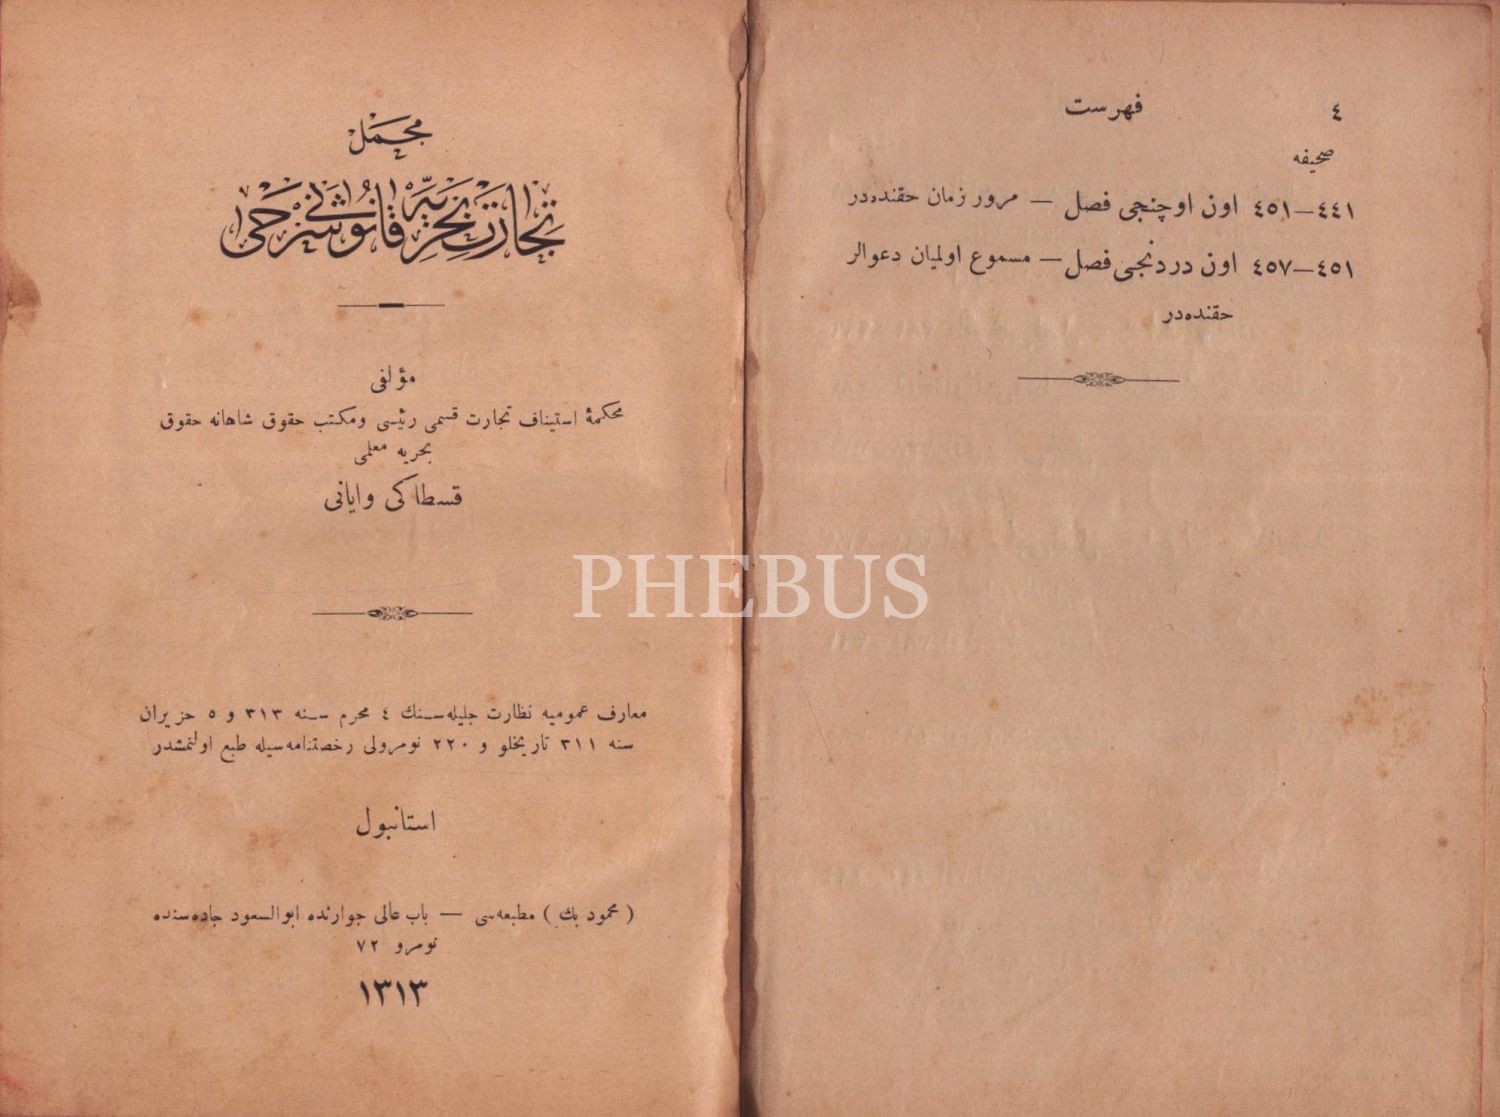 ٤ فهرست
صحیفه
٤٤١—٤٥١ اون اوچنجی فصل — مرور زمان حقنده‌در
٤٥١—٤٥٧ اون دردنجی فصل — مسموع اولمیان دعوالر
حقنده‌در
مجمل
تجارت بحریه قانونی شرحی
مؤلفی
محکمهٔ استیناف تجارت قسمی رئیسی ومکتب حقوق شاهانه حقوق
بحریه معلمی
قسطاکی وایانی
معارف عمومیه نظارت جلیله‌سنك ٤ محرم سنه ٣١٣ و ٥ حزیران
سنه ٣١١ تاریخلو و ٢٢٠ نومرولی رخصتنامه‌سیله طبع اولنمشدر
استانبول
( محمود بك ) مطبعه‌سی — باب عالی جوارنده ابوالسعود جاده‌سنده
نومرو ٧٢
١٣١٣
PHEBUS